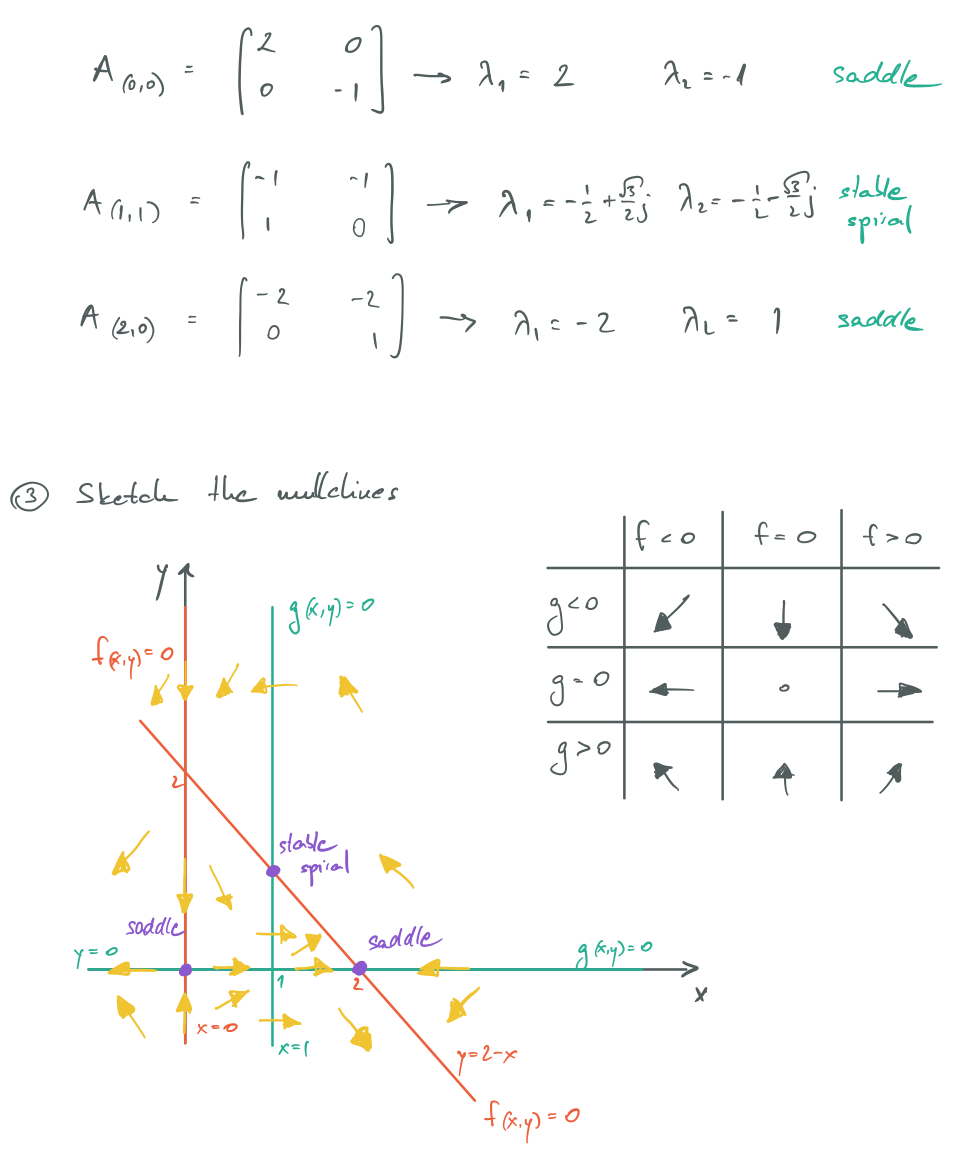 A(0,0) = [2 0 0 -1] → λ₁ = 2 λ₂ = -1 saddle
A(1,1) = [-1 -1 1 0] → λ₁ = -1/2 + √3/2 j λ₂ = -1/2 - √3/2 j stable spiral
A(2,0) = [-2 -2 0 1] → λ₁ = -2 λ₂ = 1 saddle
③ Sketch the nullclines
f<0 f=0 f>0
g<0
g=0
g>0
y
g(x,y)=0
f(x,y)=0
2
stable
spiral
saddle
saddle
y=0
g(x,y)=0
1
2
x
x=0
x=1
y=2-x
f(x,y)=0